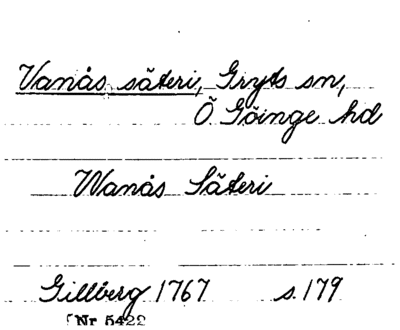 Vanås säteri, Gryts sn,
Ö Göinge hd
Wanås Säteri
Gillberg 1767 s. 179
Nr 5422